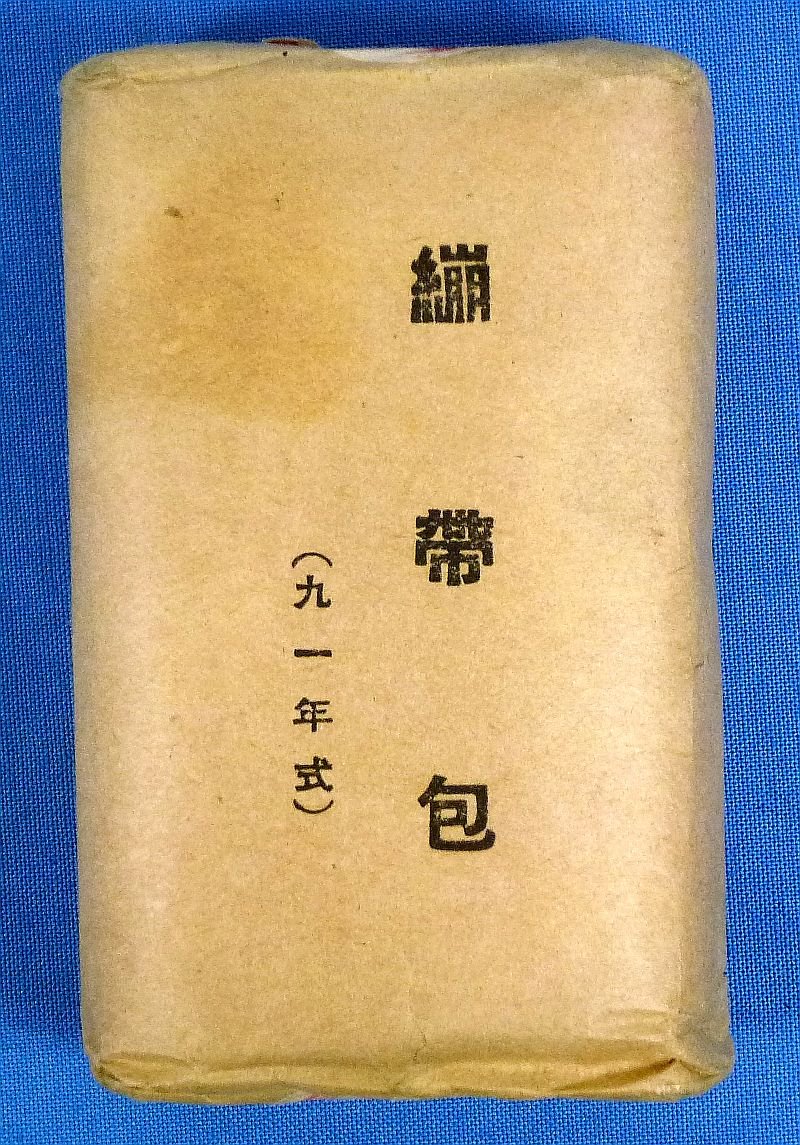 繃帶包
（九一年式）